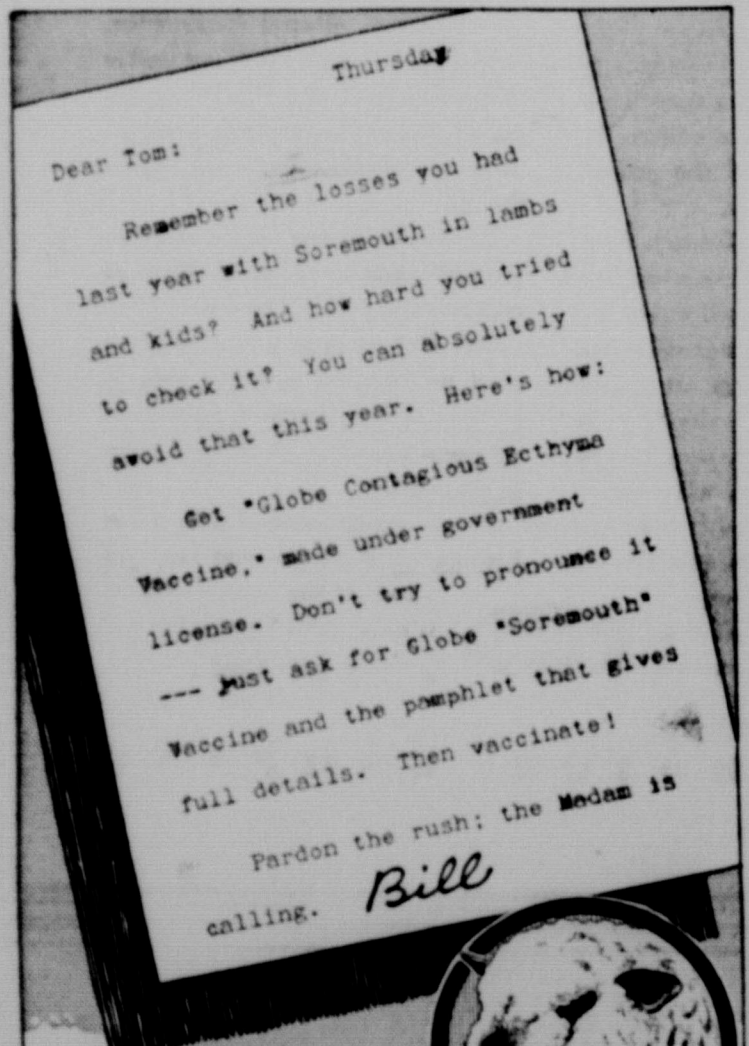 Thursday
Dear Tom:
Remember the losses you had
last year with Soremouth in lambs
and kids? And how hard you tried
to check it? You can absolutely
avoid that this year. Here's how:
Get "Globe Contagious Ecthyma
Vaccine," made under government
license. Don't try to pronounce it
--- just ask for Globe "Soremouth"
Vaccine and the pamphlet that gives
full details. Then vaccinate!
Pardon the rush; the Madam is
calling. Bill